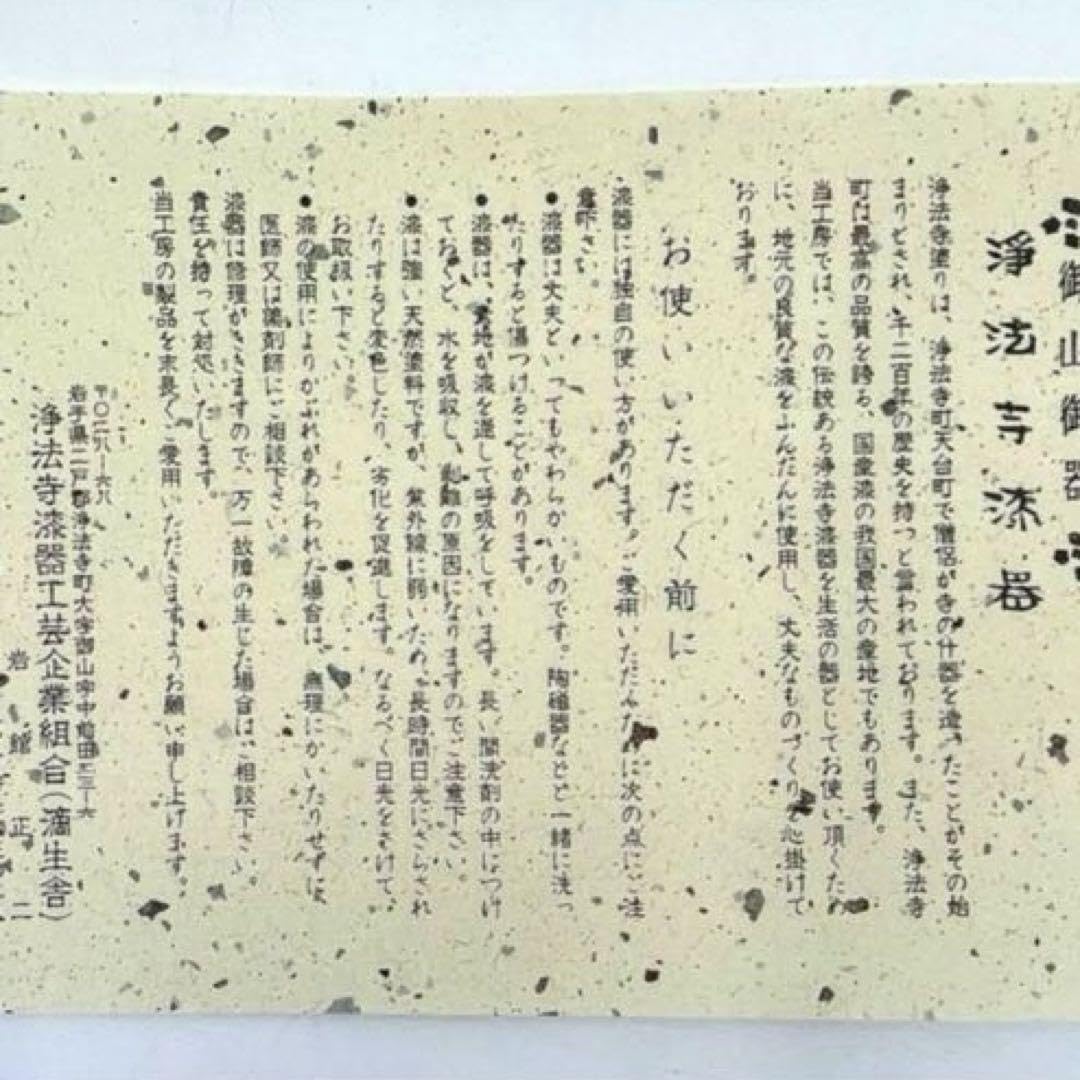 御山御器
浄法寺漆器
浄法寺塗りは、浄法寺町天台町で僧侶が寺の什器を造ったことがその始
まりとされ、千二百年の歴史を持つと言われております。また、浄法寺
町は最高の品質を誇る、国産漆の我国最大の産地でもあります。
当工房では、この伝統ある浄法寺漆器を生活の器としてお使い頂くため
に、地元の良質な漆をふんだんに使用し、丈夫なものづくりを心掛けて
おります。
お使いいただく前に
漆器には独自の使い方があります。ご愛用いただくために次の点にご注
意下さい。
●漆器は丈夫といってもやわらかいものです。陶磁器などと一緒に洗っ
たりすると傷つけることがあります。
●漆器は、素地が漆を通して呼吸をしています。長い間洗剤の中につけ
ておくと、水を吸収し、剥離の原因になりますのでご注意下さい。
●漆は強い天然塗料ですが、紫外線に弱いため、長時間日光にさらされ
たりすると変色したり、劣化を促進します。なるべく日光をさけて、
お取扱い下さい。
●漆の使用によりかぶれがあらわれた場合は、無理にかいたりせずに、
医師又は薬剤師にご相談下さい。
漆器は修理がききますので、万一故障の生じた場合はご相談下さい。
責任を持って対処いたします。
当工房の製品を末長くご愛用いただきますようお願い申し上げます。
〒〇二八―六八
岩手県二戸郡浄法寺町大字御山字中前田三―六
浄法寺漆器工芸企業組合(滴生舎)
岩舘正二